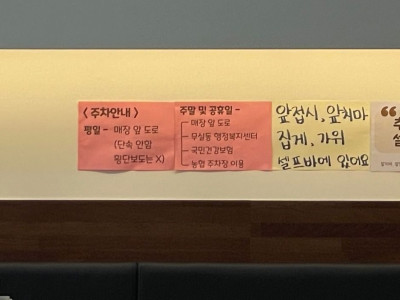 〈주차안내〉
평일 - 매장 앞 도로
(단속 안함
횡단보도는 X)
주말 및 공휴일 -
매장 앞 도로
무실동 행정복지센터
국민건강보험
농협 주차장 이용
앞접시, 앞치마
집게, 가위
셀프바에 있어요